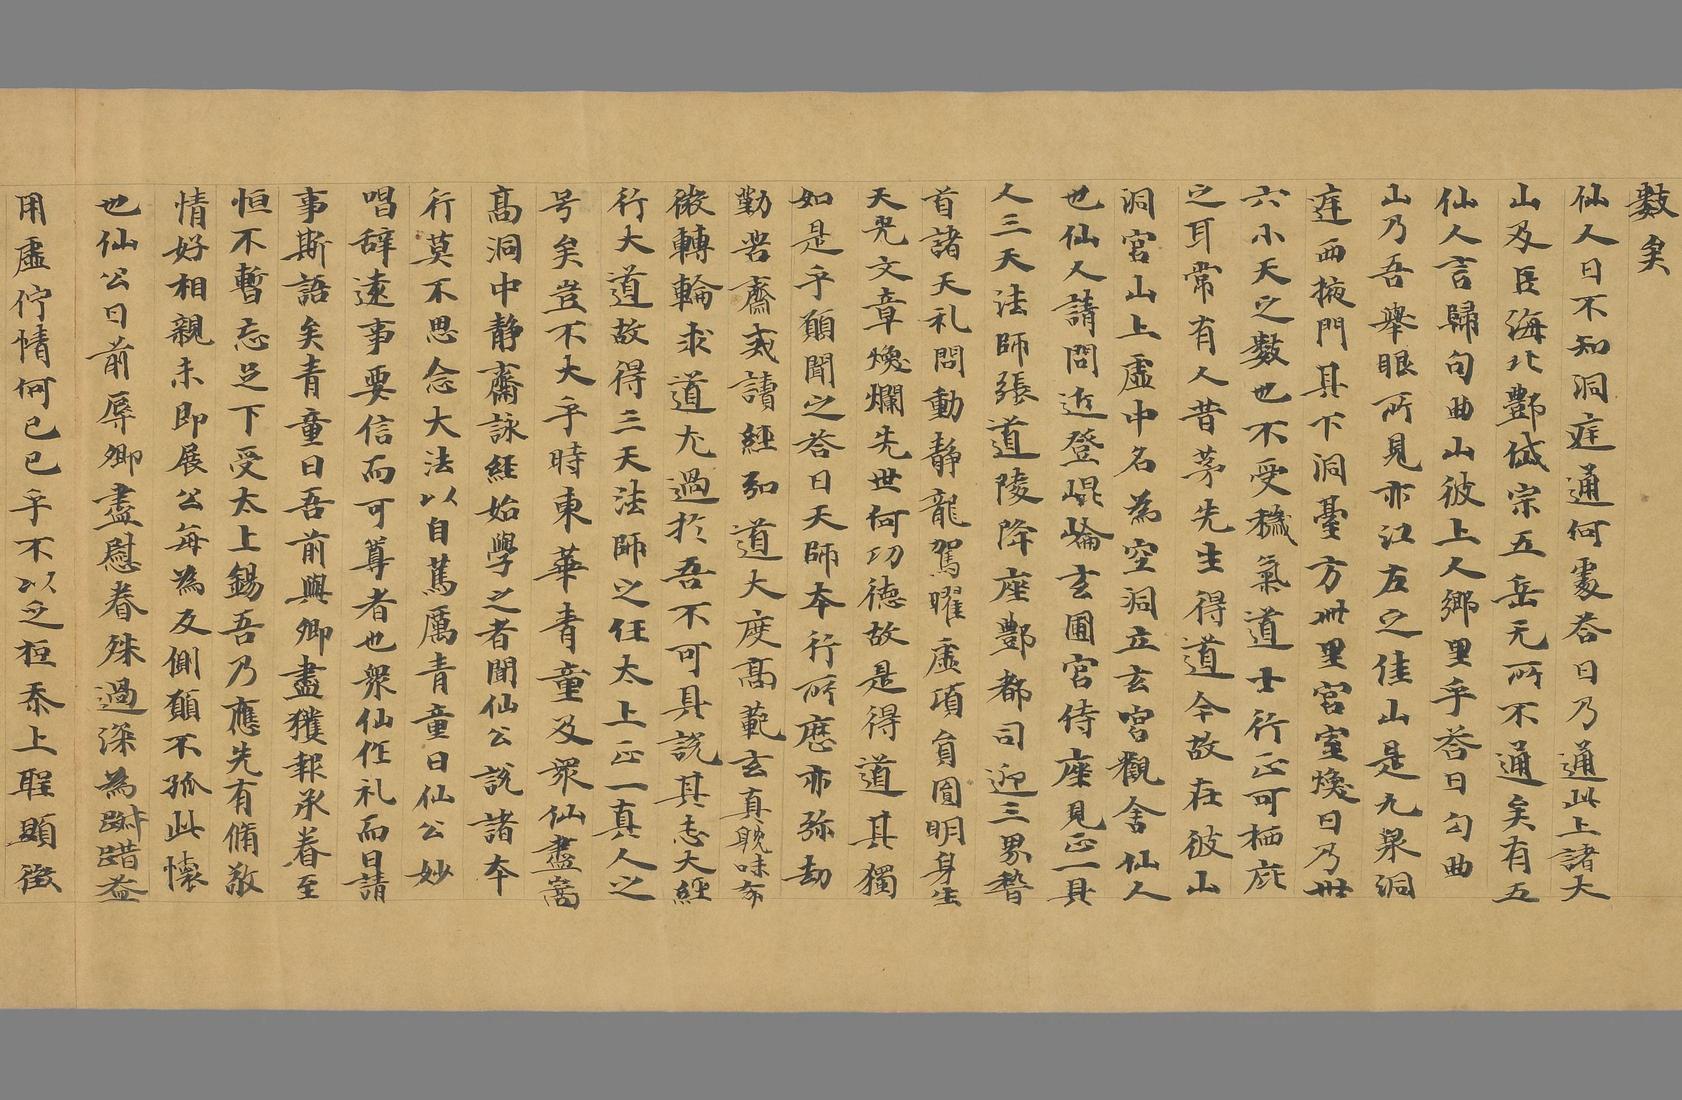 數矣
仙人曰不知洞庭通何處荅曰乃通此上諸大
山及臣海北酆岱宗五岳无所不通矣有五
仙人言歸句曲山彼上人鄉里乎荅曰句曲
山乃吾舉眼所見亦江左之佳山是九泉洞
庭西掖門其下洞臺方卌里宮室煥日乃卌
六小天之數也不受穢氣道士行正可栖庇
之耳常有人昔茅先生得道今故在彼山
洞宮山上虛中名為空洞立玄宮觀舍仙人
也仙人請問近登崐崘玄圃宮侍座見正一真
人三天法師張道陵降座酆都司迎三界稽
首諸天礼問動静龍駕曜虛項負圎明身生
天光文章煥爛先世何功德故是得道其獨
如是乎願聞之荅曰天師本行所歷亦弥劫
勤苦齋戒讀經弘道大度高範玄真耽味希
微轉輪求道尤過於吾不可具説其志大經
行大道故得三天法師之任太上正一真人之
号矣豈不大乎時東華青童及眾仙盡嵩
高洞中静齋詠經始學之者聞仙公説諸本
行莫不思念大法以自篤厲青童曰仙公妙
唱辞遠事要信而可尊者也眾仙作礼而曰請
事斯語矣青童曰吾前與卿盡獲報承眷至
恒不暫忘足下受太上錫吾乃應先有脩敬
情好相親未即展公每為反側願不孤此懷
也仙公曰前辱卿盡慰眷殊過深為踧踖益
用虛佇情何已已乎不以之恒忝上聖顯徵